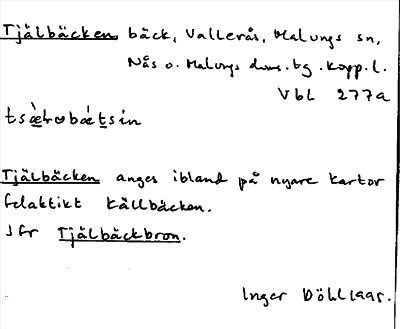 Tjälbäcken bäck, Vallerås, Malungs sn,
Nås o. Malungs doms.tg. Kopp.l.
Vbl 277a
Tjälbäcken anges ibland på nyare kartor
felaktikt källbäcken.
Jfr Tjälbäckbron.
Inger